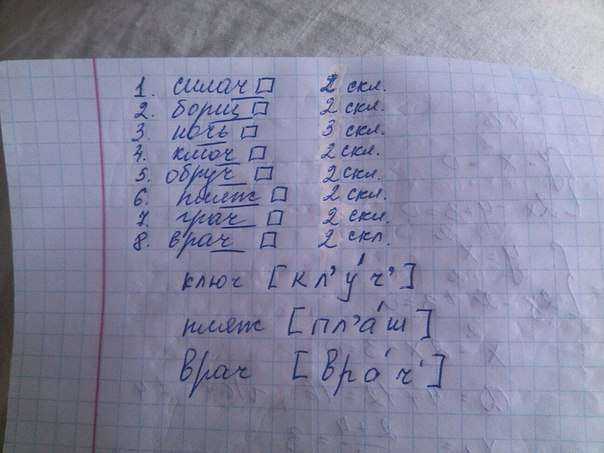 1. силач □ 2 скл.
2. борщ □ 2 скл.
3. ночь □ 3 скл.
4. ключ □ 2 скл.
5. обруч □ 2 скл.
6. пляж □ 2 скл.
7. грач □ 2 скл.
8. врач □ 2 скл.
ключ [кл'у́ч']
пляж [пл'а́ш]
врач [вра́ч']